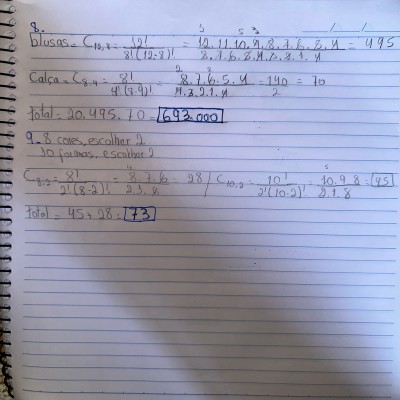 8.
blusas = C12,8 = 12! / 8!(12-8)! = 12.11.10.9.8.7.6.5.4 / 8.7.6.5.4.3.2.1.4 = 495
Calça = C8,4 = 8! / 4!(8-4)! = 8.7.6.5.4 / 4.3.2.1.4 = 140 / 2 = 70
Total = 20.495.70 = 693.000
9 - 8 cores, escolher 2
10 formas, escolher 2
C8,2 = 8! / 2!(8-2)! = 8.7.6 / 2.1.6 = 28 / C10,2 = 10! / 2!(10-2)! = 10.9.8 / 2.1.8 = 45
Total = 45 + 28 = 73